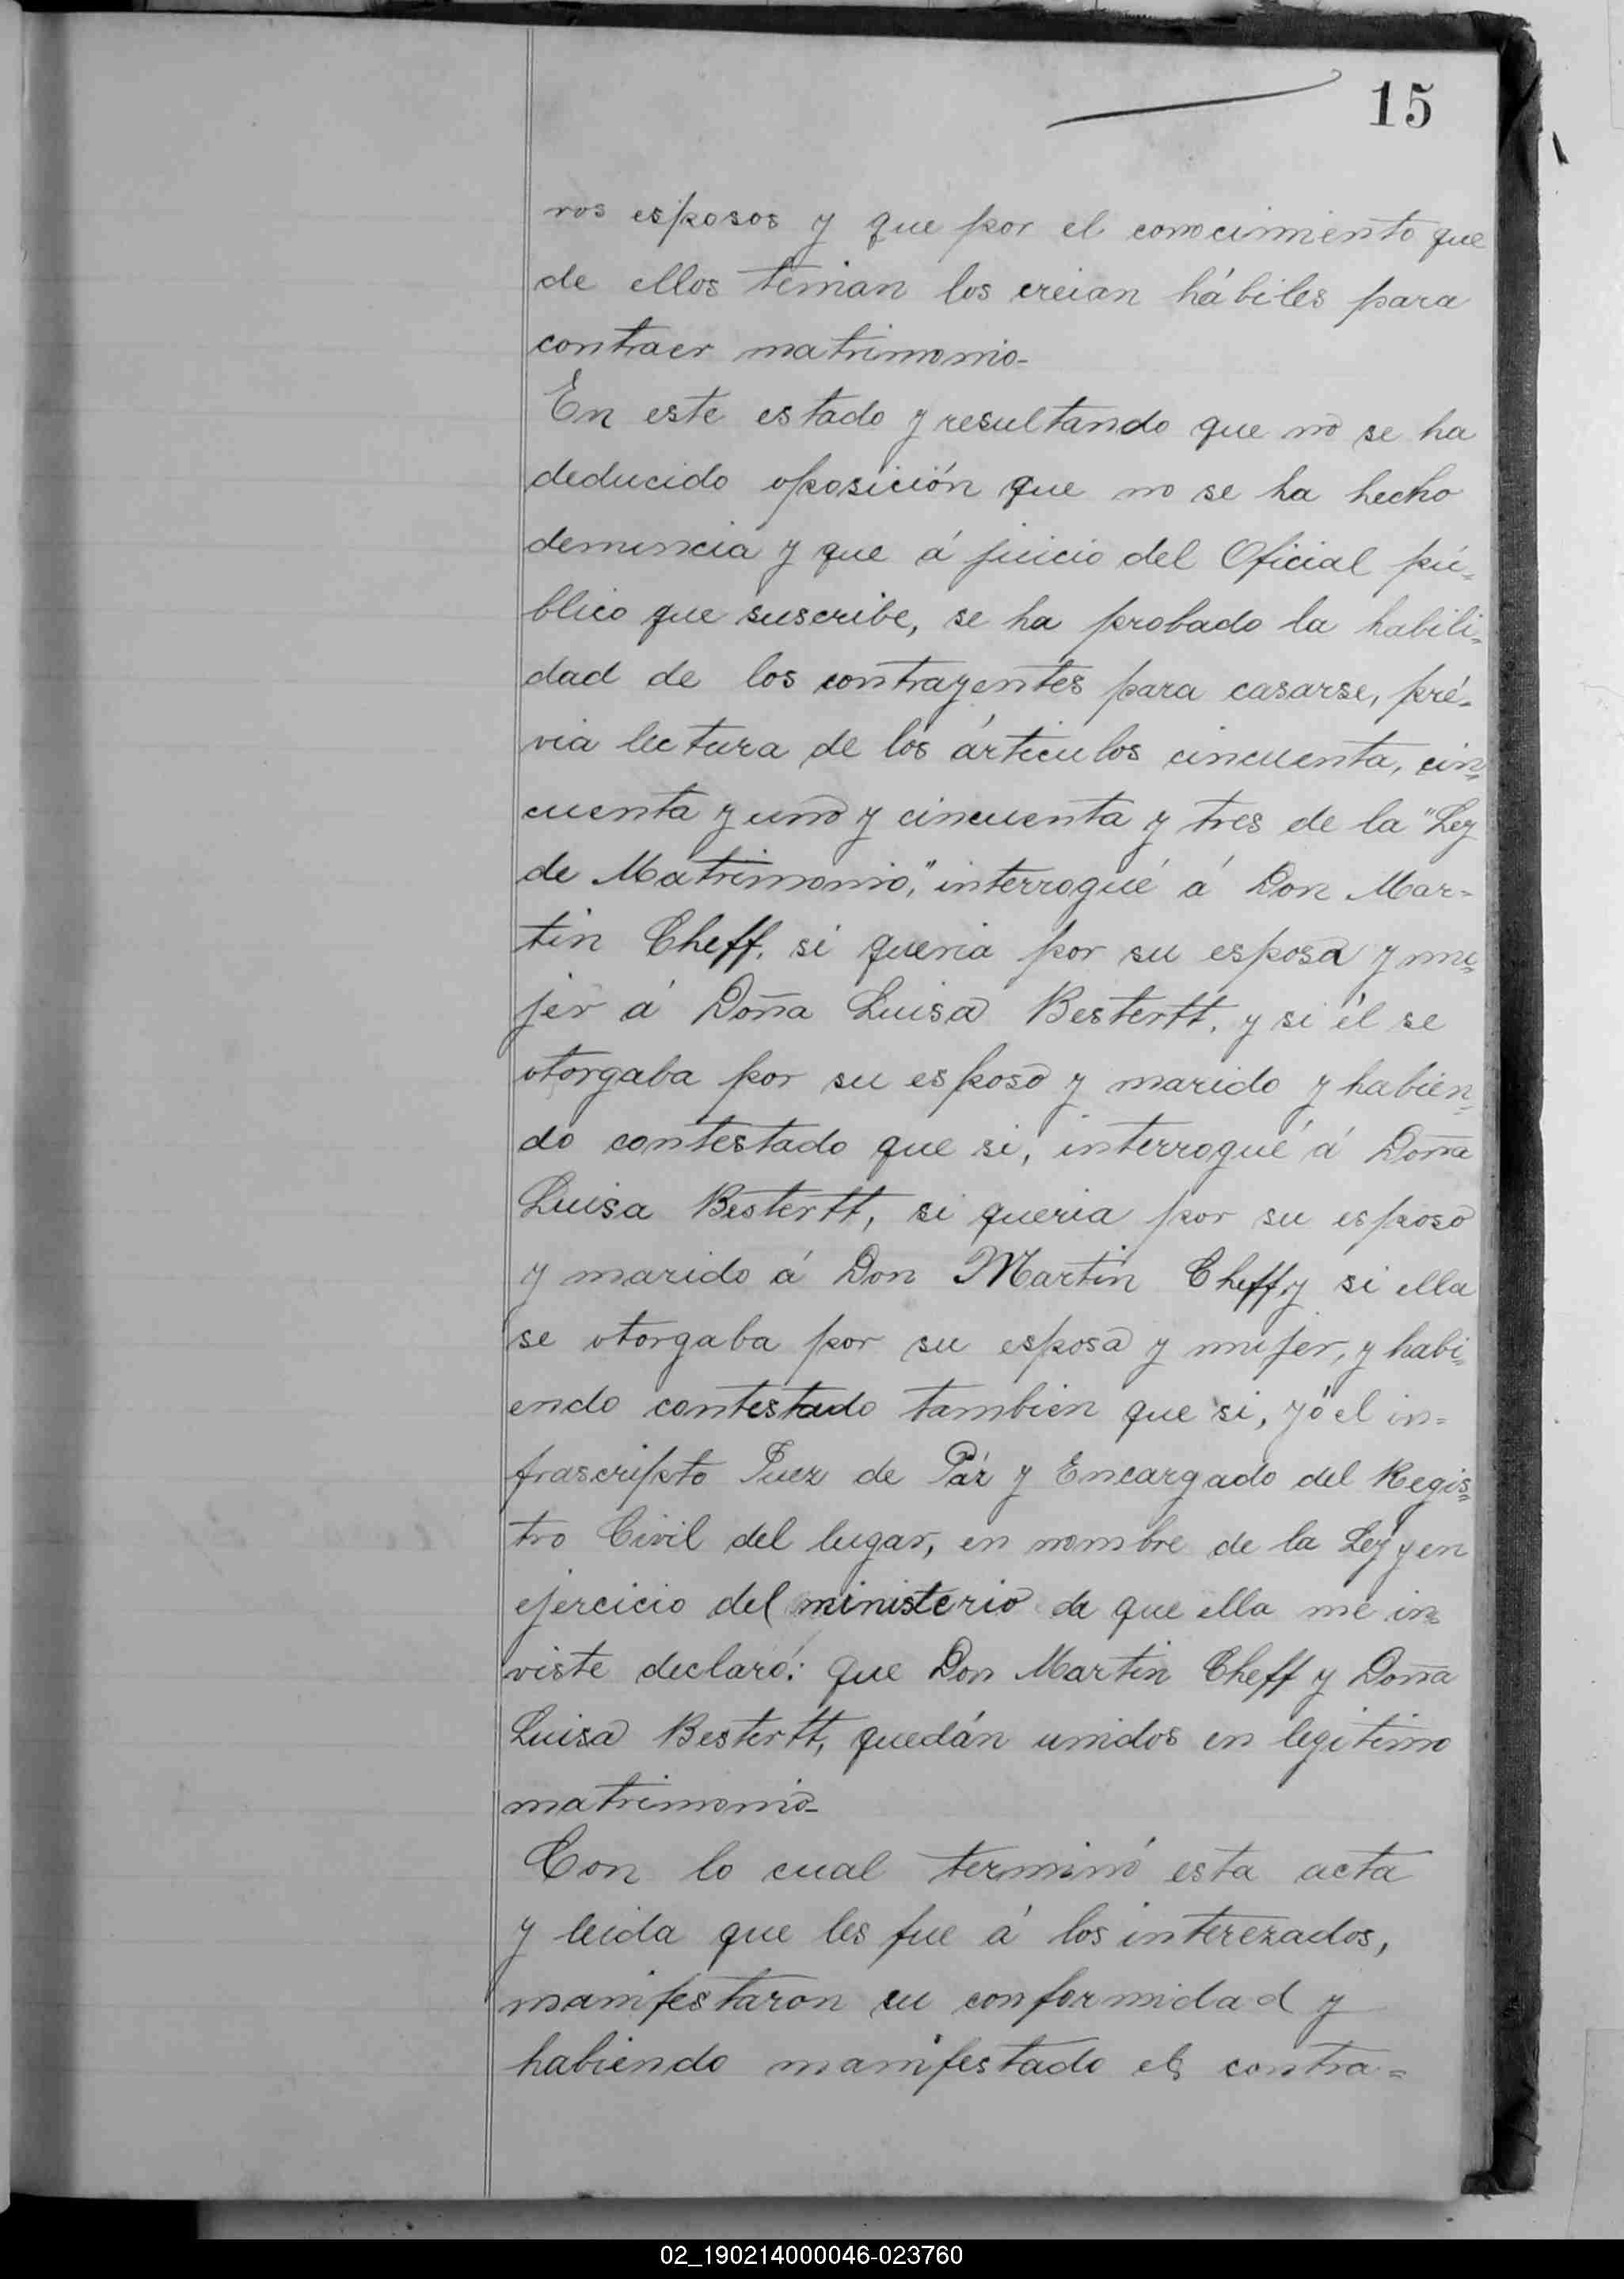 15
ros esposos y que por el conocimiento que
de ellos tenian los creian hábiles para
contraer matrimonio-
En este estado y resultando que no se ha
deducido oposición que no se ha hecho
denuncia y que á juicio del Oficial pú=
blico que suscribe, se ha probado la habili=
dad de los contrayentes para casarse, pré=
via lectura de los árticulos cincuenta, cin=
cuenta y uno y cincuenta y tres de la "Ley
de Matrimonio," interrogué á Don Mar=
tin Cheff, si queria por su esposa y mu=
jer á Doña Luisa Bestertt, y si él se
otorgaba por su esposo y marido y habien=
do contestado que si, interrogué á Doña
Luisa Bestertt, si queria por su esposo
y marido á Don Martin Cheff, y si ella
se otorgaba por su esposa y mujer, y habi=
endo contestado tambien que si, yó el in=
frascripto Juez de Páz y Encargado del Regis=
tro Civil del lugar, en nombre de la Ley y en
ejercicio del ministerio de que ella me in=
viste declaró: que Don Martin Cheff y Doña
Luisa Bestertt, quedán unidos en legitimo
matrimonio-
Con lo cual terminó esta acta
y leida que les fue á los interezados,
manifestaron su conformidad y
habiendo manifestado el contra=
02_190214000046-023760